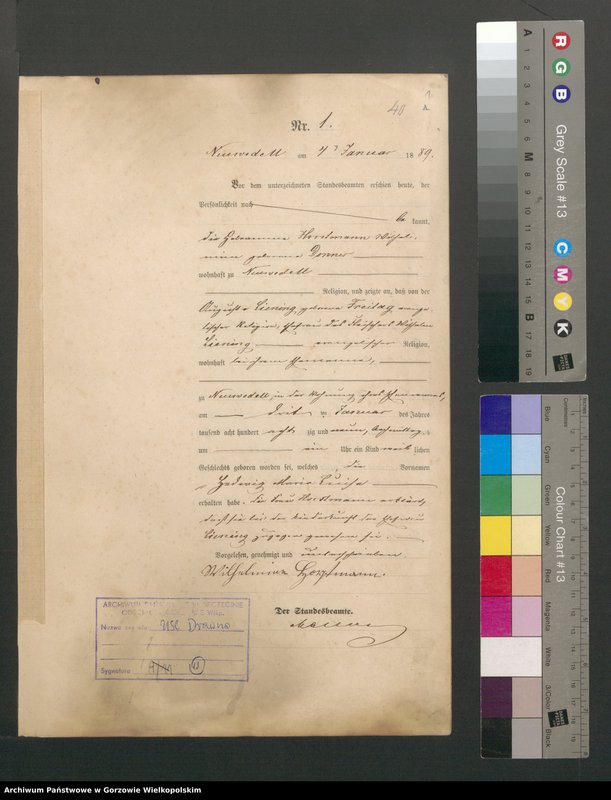 40
1.
A.
Nr. 1.
Neuwedell am 4 Januar 1889.
Vor dem unterzeichneten Standesbeamten erschien heute, der
Persönlichkeit nach
be kannt,
die Hebamme Horstmann Wilhel-
mine geborene Donner
wohnhaft zu Neuwedell
Religion, und zeigte an, daß von der
Auguste Liening, geborene Freitag evange-
lischer Religion, Ehefrau des Fleischers Wilhelm
Liening evangelischer Religion,
wohnhaft bei ihrem Ehemanne,
zu Neuwedell, in der Wohnung ihres Ehemannes,
am drit ten Januar des Jahres
tausend acht hundert acht zig und neun, Nachmittags
um ein Uhr ein Kind weib lichen
Geschlechts geboren worden sei, welches die Vornamen
Hedwig Marie Luise
erhalten habe. Die Frau Horstmann erklärt,
daß sie bei der Niederkunft der Ehefrau
Liening zugegen gewesen sei.
Vorgelesen, genehmigt und unterschrieben
Wilhelmine Horstmann.
Der Standesbeamte.
ARCHIWUM PAŃSTWOWE W SZCZECINIE
Nazwa zespołu USC Drawno
Sygnatura
A
1
2
3
4
5
6
M
8
9
10
11
12
13
14
15
B
17
18
19
R
G
B
Grey Scale #13
C
M
Y
K
Inches
Centimetres
Colour Chart #13
Blue
Cyan
Green
Yellow
Red
Magenta
White
3/Color
Black
Archiwum Państwowe w Gorzowie Wielkopolskim